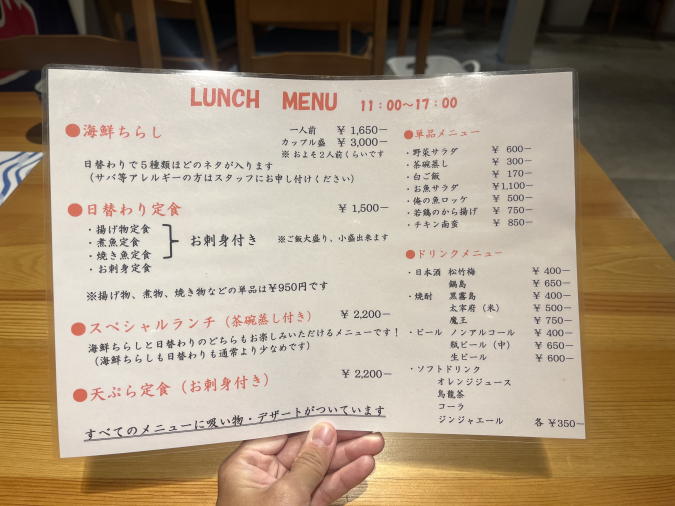 LUNCH MENU 11：00～17：00
●海鮮ちらし 一人前 ￥1,650－
カップル盛 ￥3,000－
※ およそ２人前くらいです
日替わりで５種類ほどのネタが入ります
（サバ等アレルギーの方はスタッフにお申し付けください）
●日替わり定食 ￥1,500－
・揚げ物定食
・煮魚定食
・焼き魚定食
・お刺身定食
お刺身付き ※ご飯大盛り、小盛出来ます
※揚げ物、煮物、焼き物などの単品は￥950円です
●スペシャルランチ（茶碗蒸し付き） ￥2,200－
海鮮ちらしと日替わりのどちらもお楽しみいただけるメニューです！
（海鮮ちらしも日替わりも通常より少なめです）
●天ぷら定食（お刺身付き） ￥2,200－
すべてのメニューに吸い物・デザートがついています
●単品メニュー
・野菜サラダ ￥600－
・茶碗蒸し ￥300－
・白ご飯 ￥170－
・お魚サラダ ￥1,100－
・俺の魚ロッケ ￥500－
・若鶏のから揚げ ￥750－
・チキン南蛮 ￥850－
●ドリンクメニュー
・日本酒 松竹梅 ￥400－
鍋島 ￥650－
・焼酎 黒霧島 ￥400－
太宰府（米） ￥500－
魔王 ￥750－
・ビール ノンアルコール ￥400－
瓶ビール（中） ￥650－
生ビール ￥600－
・ソフトドリンク
オレンジジュース
烏龍茶
コーラ
ジンジャエール 各￥350－